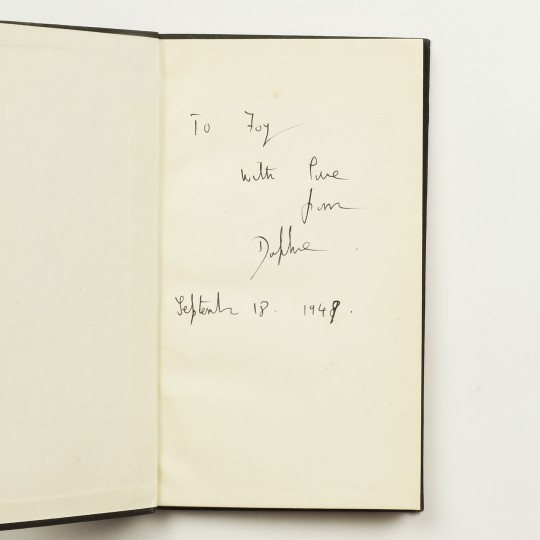 To Foy
with love
from
Daphne.
September 18. 1948.